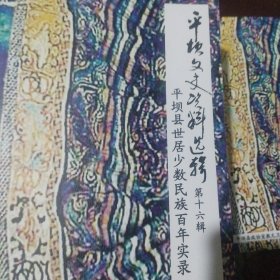 平坝文史资料选辑
第十六辑
平坝县世居少数民族百年实录